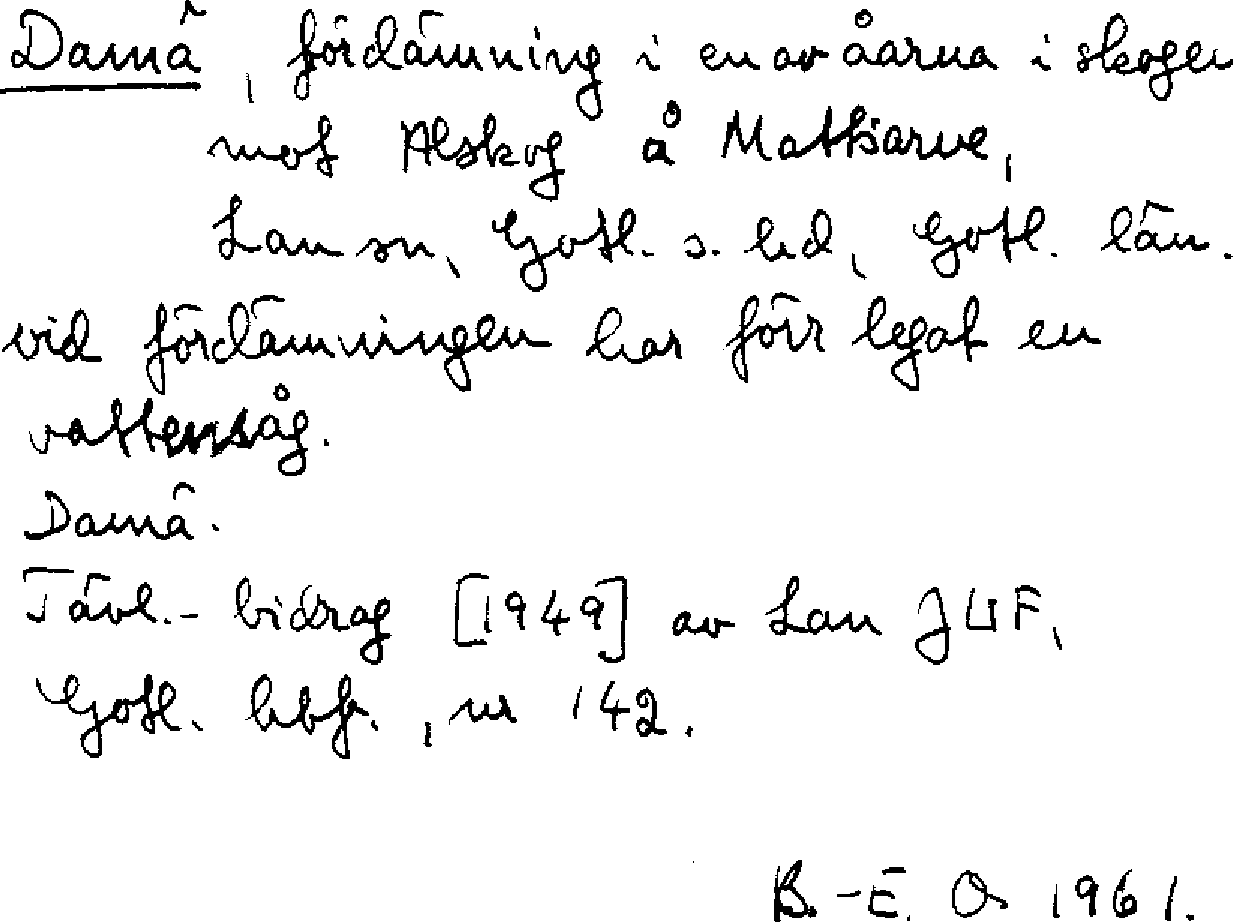 Damä, fördämning i en av åarna i skogen
mot Alskog å Mattsarve,
Lau sn, Gotl. s. hd, Gotl. län.
vid fördämningen har förr legat en
vattensåg.
Damä.
Tävl.- bidrag [1949] av Lau JUF,
Gotl. hbf., nr 142.
B.-E. O. 1961.